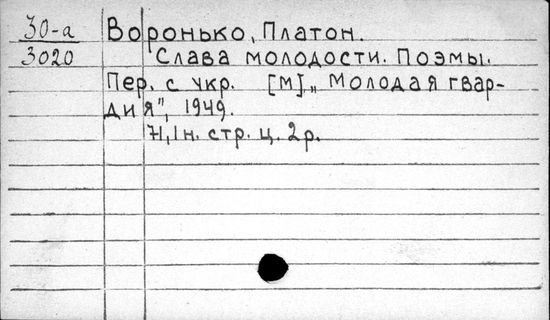 30-а Воронько, Платон.
3020 Слава молодости. Поэмы.
Пер. с укр. [М], „Молодая гвар-
дия", 1949.
71, 1 н. стр. ц. 2 р.